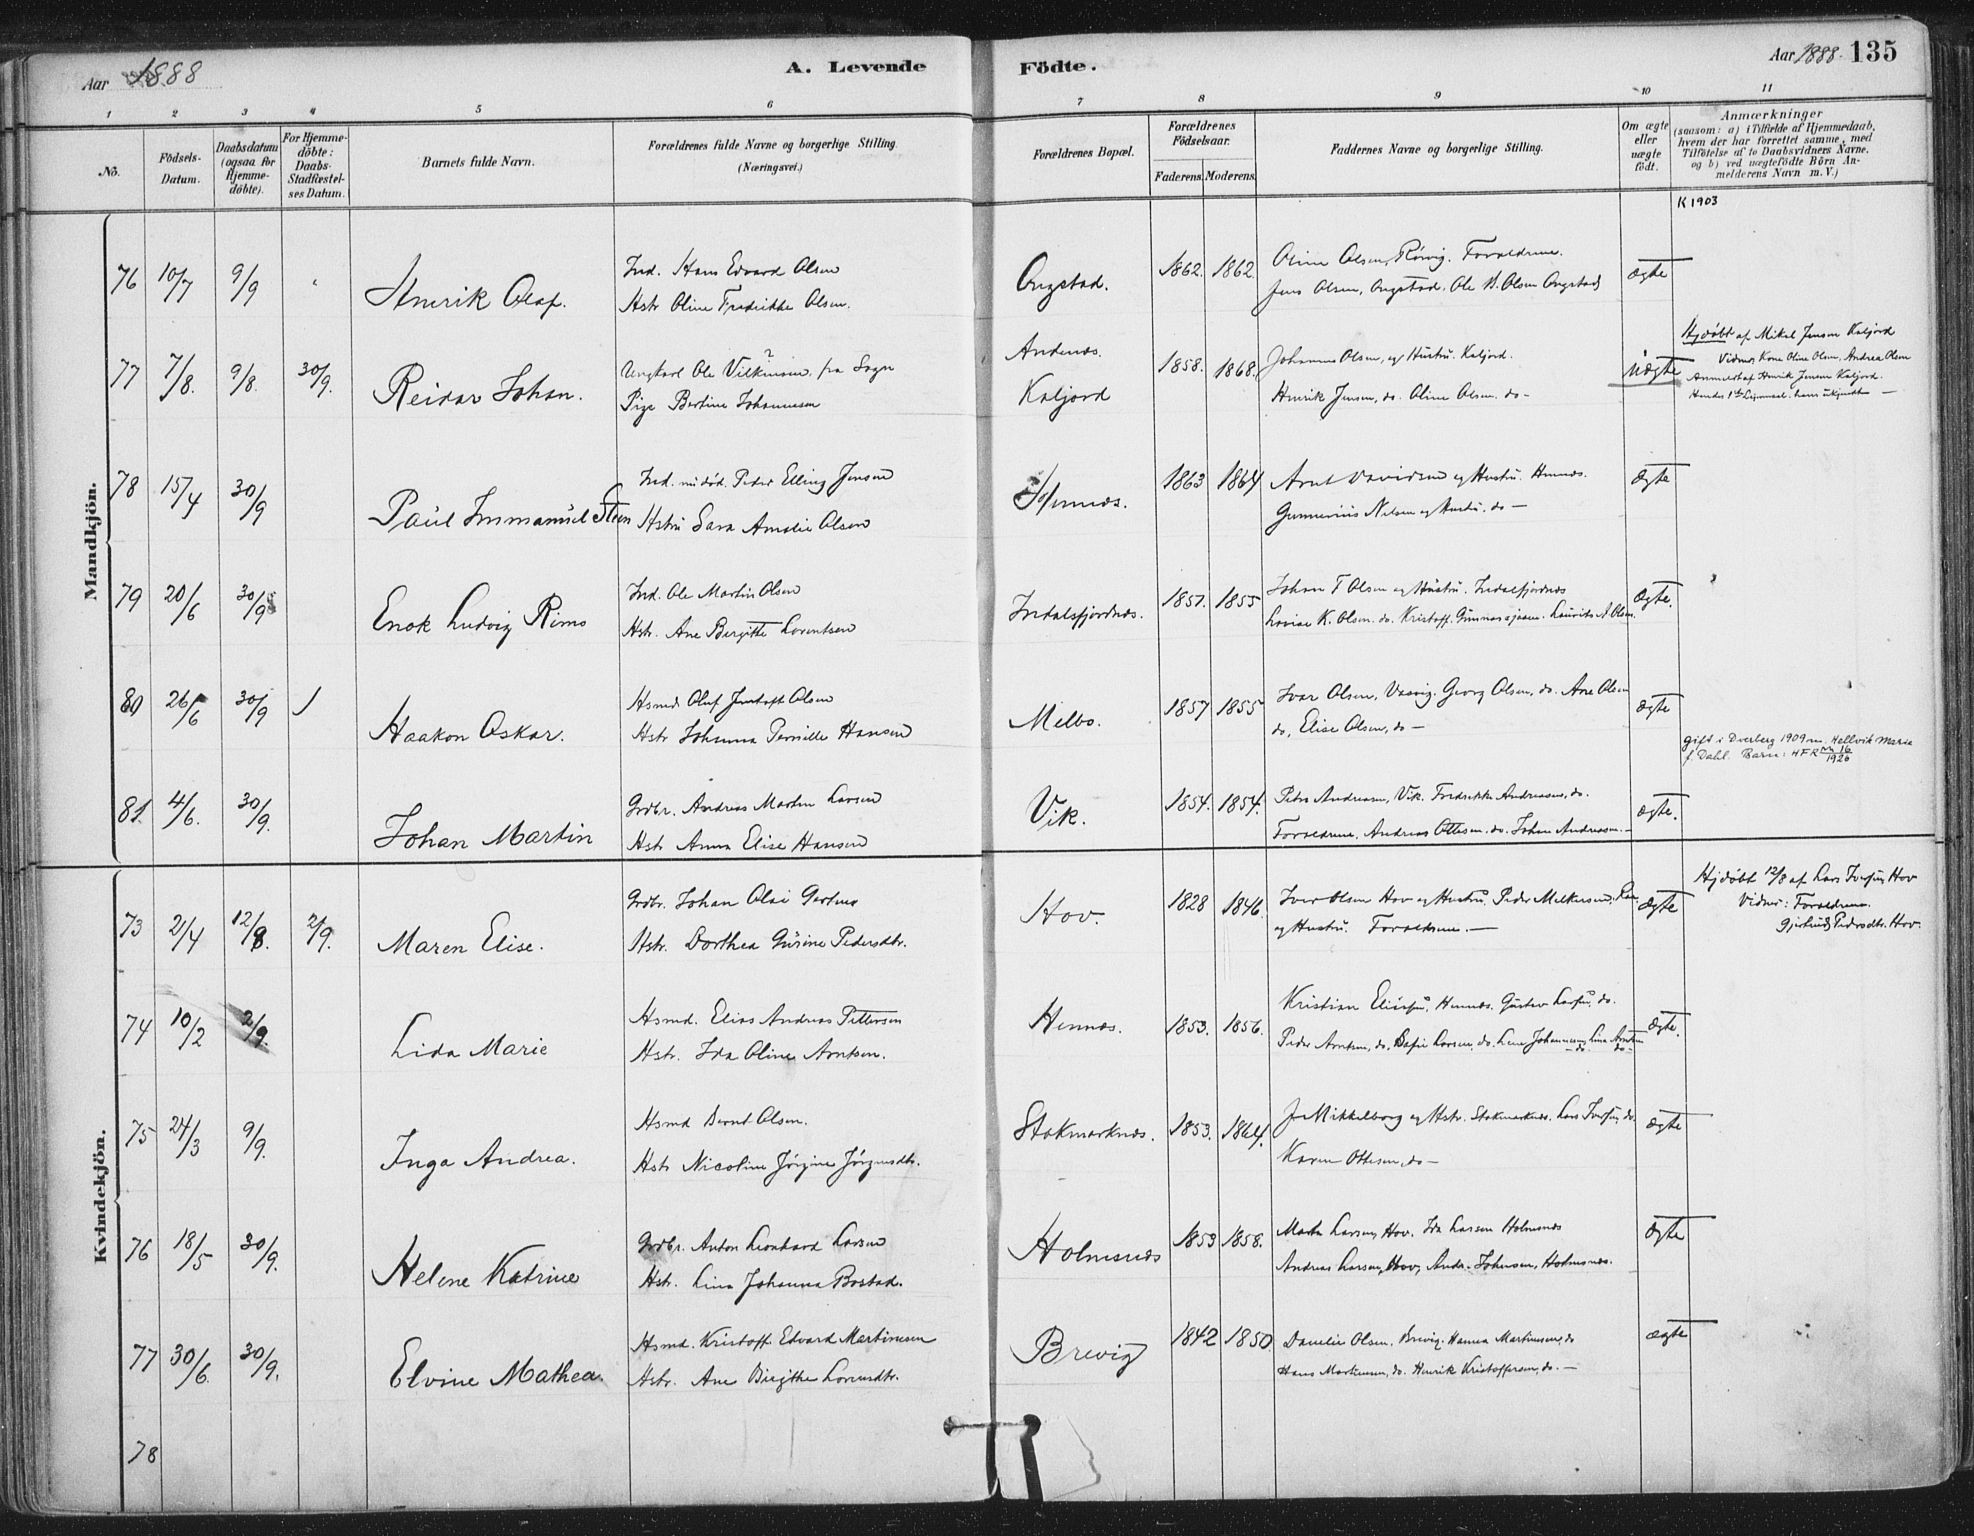 Aar 1888
A. Levende Födte.
Aar 1888. 135
1 2 3 4 5 6 7 8 9 10 11
No.
Födsels-Datum.
Daabsdatum (ogsaa for Hjemme-döbte).
For Hjemme-döbte: Daabs-Stadfæstel-ses Datum.
Barnets fulde Navn.
Forældrenes fulde Navne og borgerlige Stilling. (Næringsvei.)
Forældrenes Bopæl.
Forældrenes Födselsaar.
Faderens. Moderens.
Faddernes Navne og borgerlige Stilling.
Om ægte eller uægte födt.
Anmærkninger
(saasom: a) i Tilfælde af Hjemmedaab,
hvem der har forrettet samme, med
Tilföielse af to Daabsvidners Navne,
og b) ved uægtefödte Börn An-
melderens Navn m. V.)
K 1903
Mandkjön.
76 10/7 9/9 Henrik Olaf.
Ind. Hans Edvard Olsen
Hstr Oline Fredrikke Olsen.
Ongstad. 1862. 1862
Oline Olsen, Rörvig. Forældrene.
Jens Olsen, Ongstad. Ole B. Olsen Ongstad
ægte
77 7/8. 9/8. 30/9. Reidar Johan.
Ungkarl Ole Vilkensen fra Sogn
Pige Bertine Johannesen
Andenæs.
Kaljord
1858. 1868.
Johannes Olsen, og Hustru. Kaljord.
Henrik Jensen, do. Oline Olsen. do-
Uægte
Hjdöbt af Mikal Jensen Kaljord
Vidner, Kone Oline Olsen, Andrea Olsen
Anmeldt af Henrik Jensen Kaljord.
78 15/4 30/9 Paul Immanuel Steen
Ind. Peder Elling Jensen
Hstru Sara Amalie Olsen
Hennes. 1863 1864
Arnt Davidsen og Hustru. Hennes.
Gunnerius Nilsen og Hustru. do —
Ægte
79 20/6 30/9 Enok Ludvig Rimo
Ind. Ole Martin Olsen
Hstr. Ane Bergitte Lorentsen
Indalsfjordnes. 1857. 1855
Johan T Olsen og Hustru. Indalsfjordnes
Lovise K. Olsen. do. Kristoff. Laurits A Olsen.
Ægte.
80 26/6 30/9 Haakon Oskar.
Hsmd Oluf Jentoft Olsen
Hstr Johanna Pernille Hansen
Melbo. 1857 1855
Ivar Olsen, Vasvig. Georg Olsen, do. Ane Olsen
do, Elise Olsen, do —
ægte
gift i Dverberg 1909 m. Hellvik Marie
f. Dahl. Barn: HFR Nr 16/1926
81. 4/6. 30/9. Johan Martin
Grdbr. Andreas Martin Larsen
Hstr Anna Elise Hansen
Vik. 1854. 1854.
Petra Andreasen, Vik. Fredrikke Andreasen, do.
Forældrene, Andreas Ottesen. do. Johan Andreasen. —
ægte.
Kvindekjön.
73 2/4 12/8. 2/9. Maren Elise.
Grdbr. Johan Olai
Hstr. Dorthea Gurine Pedersdtr.
Hov. 1828 1846.
Iver Olsen Hov og Hustru, Peder Melkersen,
og Hustru. Forældrene. —
Ægte
Hjdöbt 12/8 af Lars Iversen Hov
Vidner: Forældrene.
Gjertrud Pedersdtr. Hov.
74 10/2 2/9. Lida Marie
Hsmd. Elias Andreas Pettersen
Hstr. Ida Oline Arntsen.
Hennes. 1853. 1856.
Kristian Eliasen, Hennes. Gustav Larsen, do.
Peder Arntsen, do, Larsen, do. Lene Johannesen, Lina Arntsen
do do
Ægte.
75 24/3 9/9. Inga Andrea.
Hsmd Bernt Olsen.
Hstr Nicoline Jörgine Jörgensdtr.
Stokmarknes. 1853. 1864.
J Mikkelborg og Hstr. Stokmarknes. Lars Iversen, do.
Karen Ottesen, do —
Ægte
76 18/5 30/9. Helene Katrine
Grdbr. Anton Leonhard Larsen
Hstr. Lina Johanna Bostad.
Holmsnes 1853 1858.
Marta Larsen, Hov. Ida Larsen Holmsnes
Andreas Larsen, Hov, Andr. Johnsen, Holmsnes.
Ægte
77 30/6. 30/9. Elvine Mathea.
Hsmd. Kristoff. Edvard Martinesen
Hstr. Ane Birgithe Lorensdtr.
Brevig 1842 1850
Danelie Olsen, Brevig. Hanna Martinesen, do
Hans Martinsen, do. Henrik Kristoffersen, do. —
ægte
78